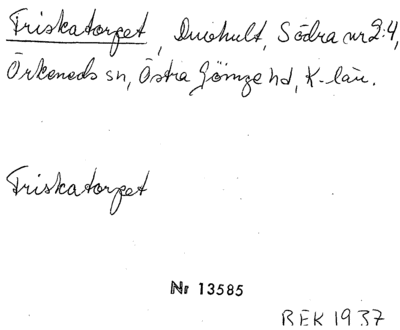 Friskatorpet, Duvhult, Södra nr 2:4,
Örkeneds sn, Östra Göinge hd, K-län.
Friskatorpet
Nr 13585
BEK 1937